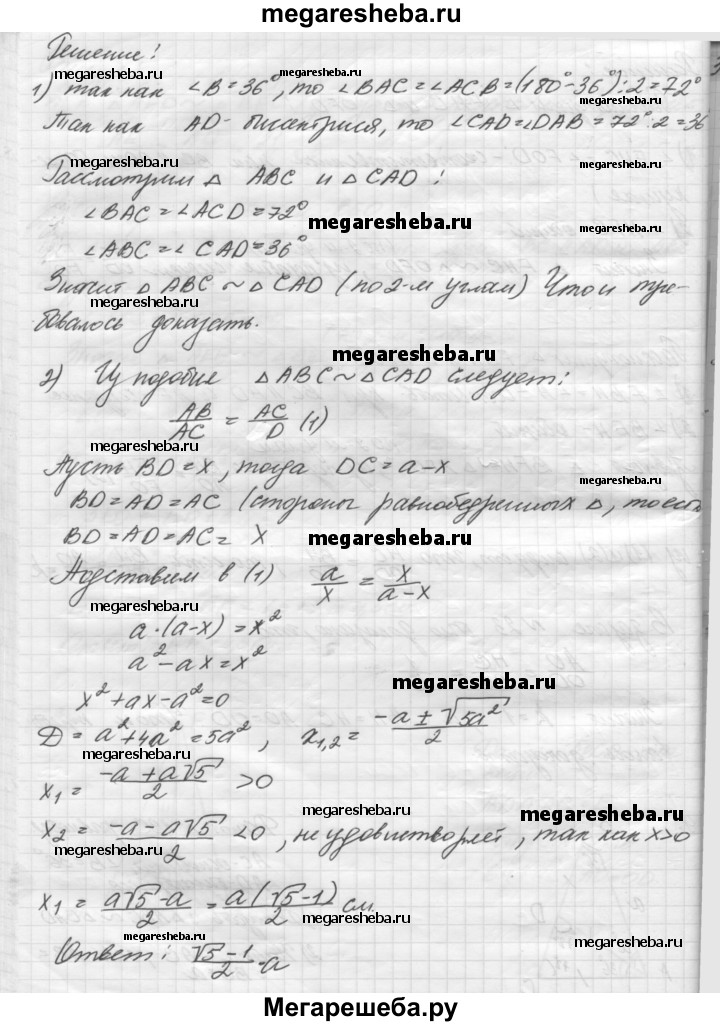 megaresheba.ru
Решение!
1) так как ∠B=36°, то ∠BAC=∠ACB=(180°-36°):2=72°
Так как AD- бисектриса, то ∠CAD=∠DAB=72°:2=36
megaresheba.ru
Рассмотрим △ ABC и △CAD!
∠BAC=∠ACD=72°
megaresheba.ru
∠ABC=∠CAD=36°
megaresheba.ru
Значит △ ABC ~ △ CAD (по 2-м углам) Что и тре-
megaresheba.ru
бовалось доказать.
megaresheba.ru
2) Из подобия △ABC~△CAD следует:
AB/AC = AC/D (1)
megaresheba.ru
Пусть BD=x, тогда DC=a-x
megaresheba.ru
BD=AD=AC (стороны равнобедренных △, то есть
BD=AD=AC= x
megaresheba.ru
Подставим в (1) a/x = x/a-x
megaresheba.ru
a·(a-x)=x²
a²-ax=x²
x²+ax-a²=0
megaresheba.ru
D=a²+4a²=5a², x₁,₂= -a±√5a²/2
megaresheba.ru
x₁= -a+a√5/2 >0
megaresheba.ru
megaresheba.ru
x₂= -a-a√5/2 <0, не удовлетворяет, так как x>0
megaresheba.ru
x₁= a√5-a/2 = a(√5-1)/2 см.
megaresheba.ru
megaresheba.ru
Ответ: √5-1/2·a
megaresheba.ru
Мегарешеба.ру